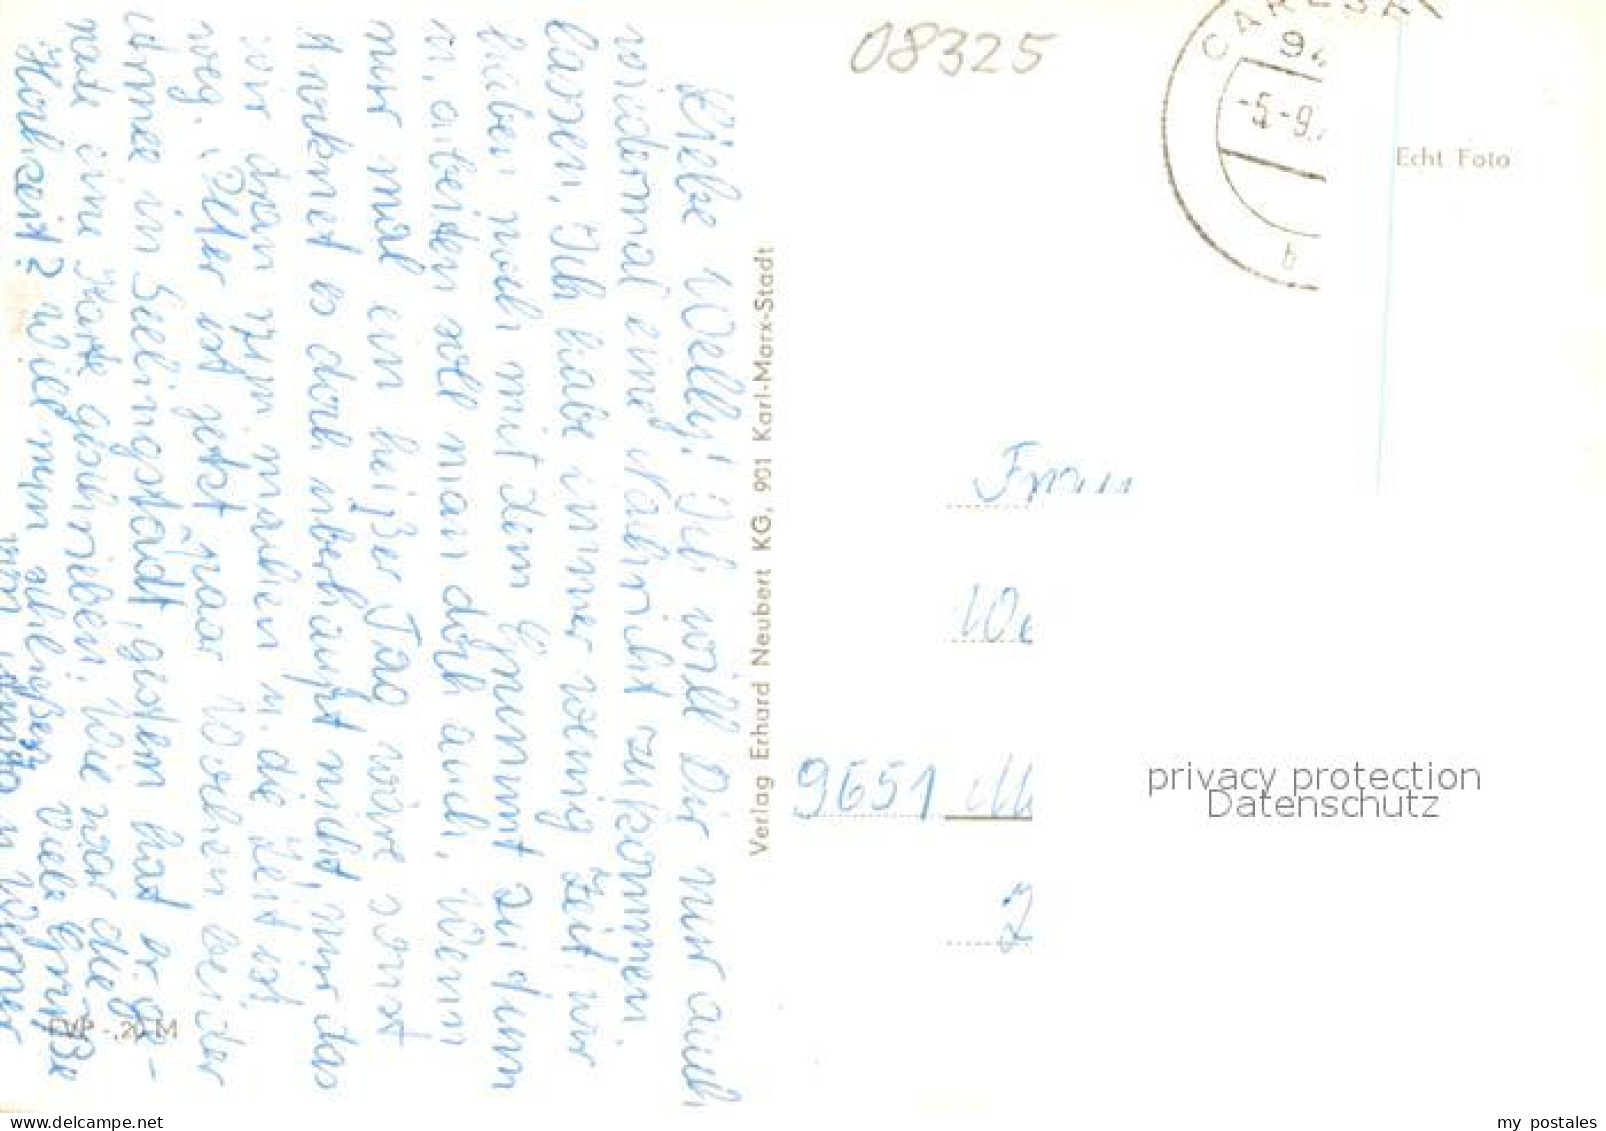 Liebe Welly! Ich will Dir nur auch
wiedermal eine Nachricht zukommen
lassen, Ich habe immer wenig Zeit, wir
haben noch mit dem Grummt zu tun
u. arbeiten soll man doch auch, Wenn
nur mal ein heißer Tag wäre sonst
trocknet es doch überhaupt nicht, nur das
wir dran rum machen u. die Zeit ist
weg. ist jetzt paar Wochen bei der
Armee in Seelingstädt, gestern hat er ge-
rade eine Karte geschrieben. Wie war die
Hochzeit? Will nun schließen Viele Grüße
von u. Werner
Verlag Erhard Neubert KG, 901 Karl-Marx-Stadt
EVP -,20 M
08325
CARLSF
94
-5.-9.
b
Echt Foto
Frau
We
9651 M
privacy protection
Datenschutz
delcampe.net
my postales